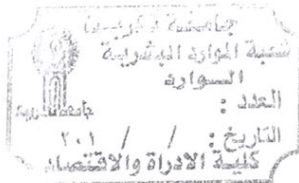 جامعة تكريت
شعبة الموارد البشرية
الصادرة
العدد :
التاريخ : / / ٢٠١
كلية الادارة والاقتصاد